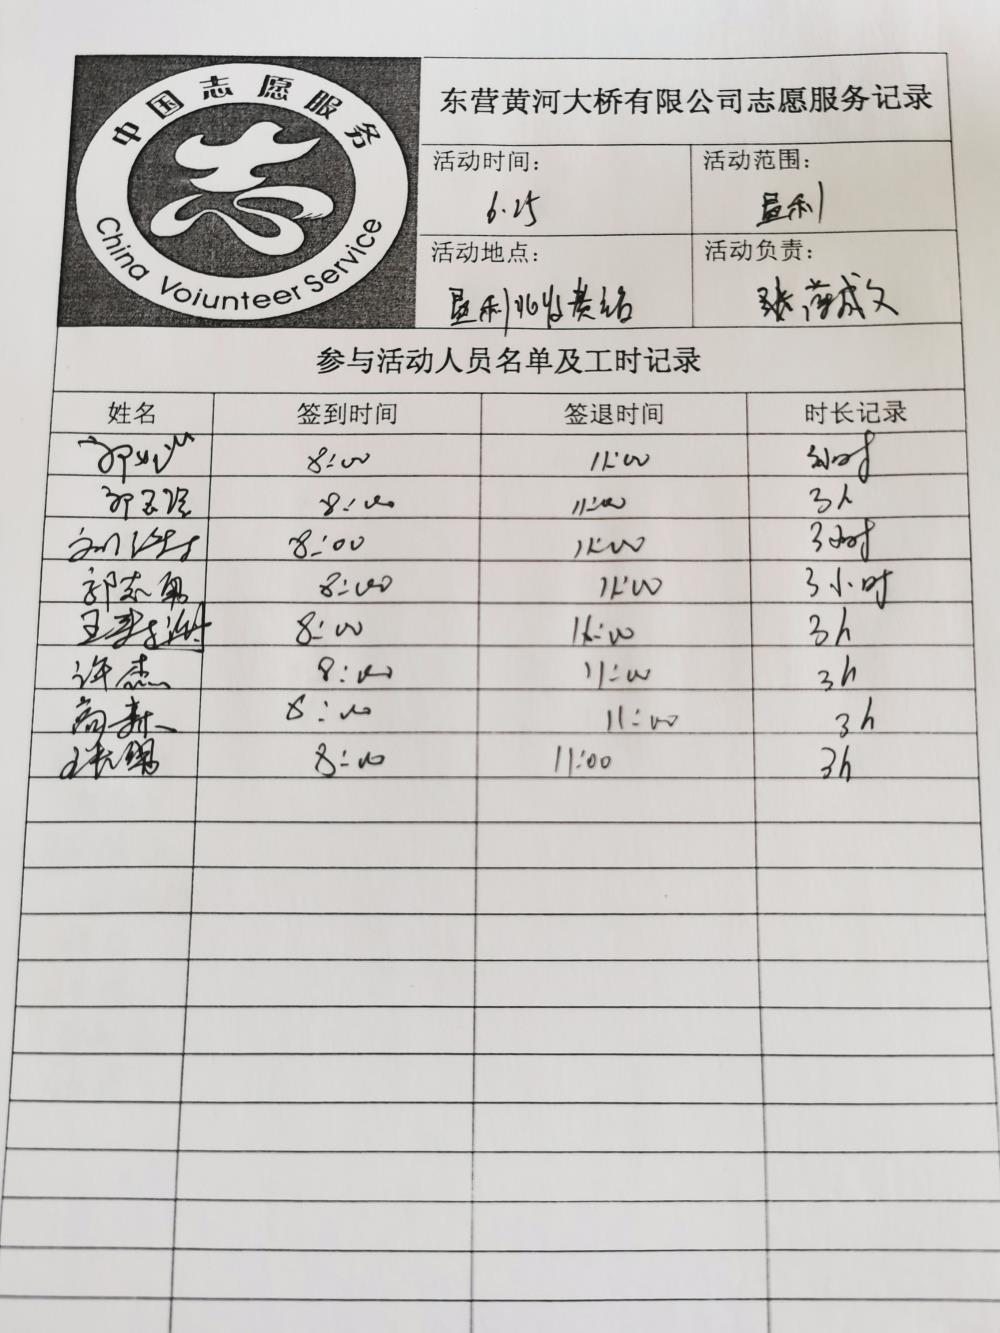 中国志愿服务
China Voiunteer Service
东营黄河大桥有限公司志愿服务记录
活动时间：
6.25
活动范围：
垦利
活动地点：
垦利收费站
活动负责：
张 成文
参与活动人员名单及工时记录
姓名 签到时间 签退时间 时长记录
8:00 11:00 小时
8:00 11:00 3h
8:00 11:00 3小时
郭志勇 8:00 11:00 3小时
王 8:00 11:00 3h
许杰 8:00 11:00 3h
8:00 11:00 3h
8:00 11:00 3h